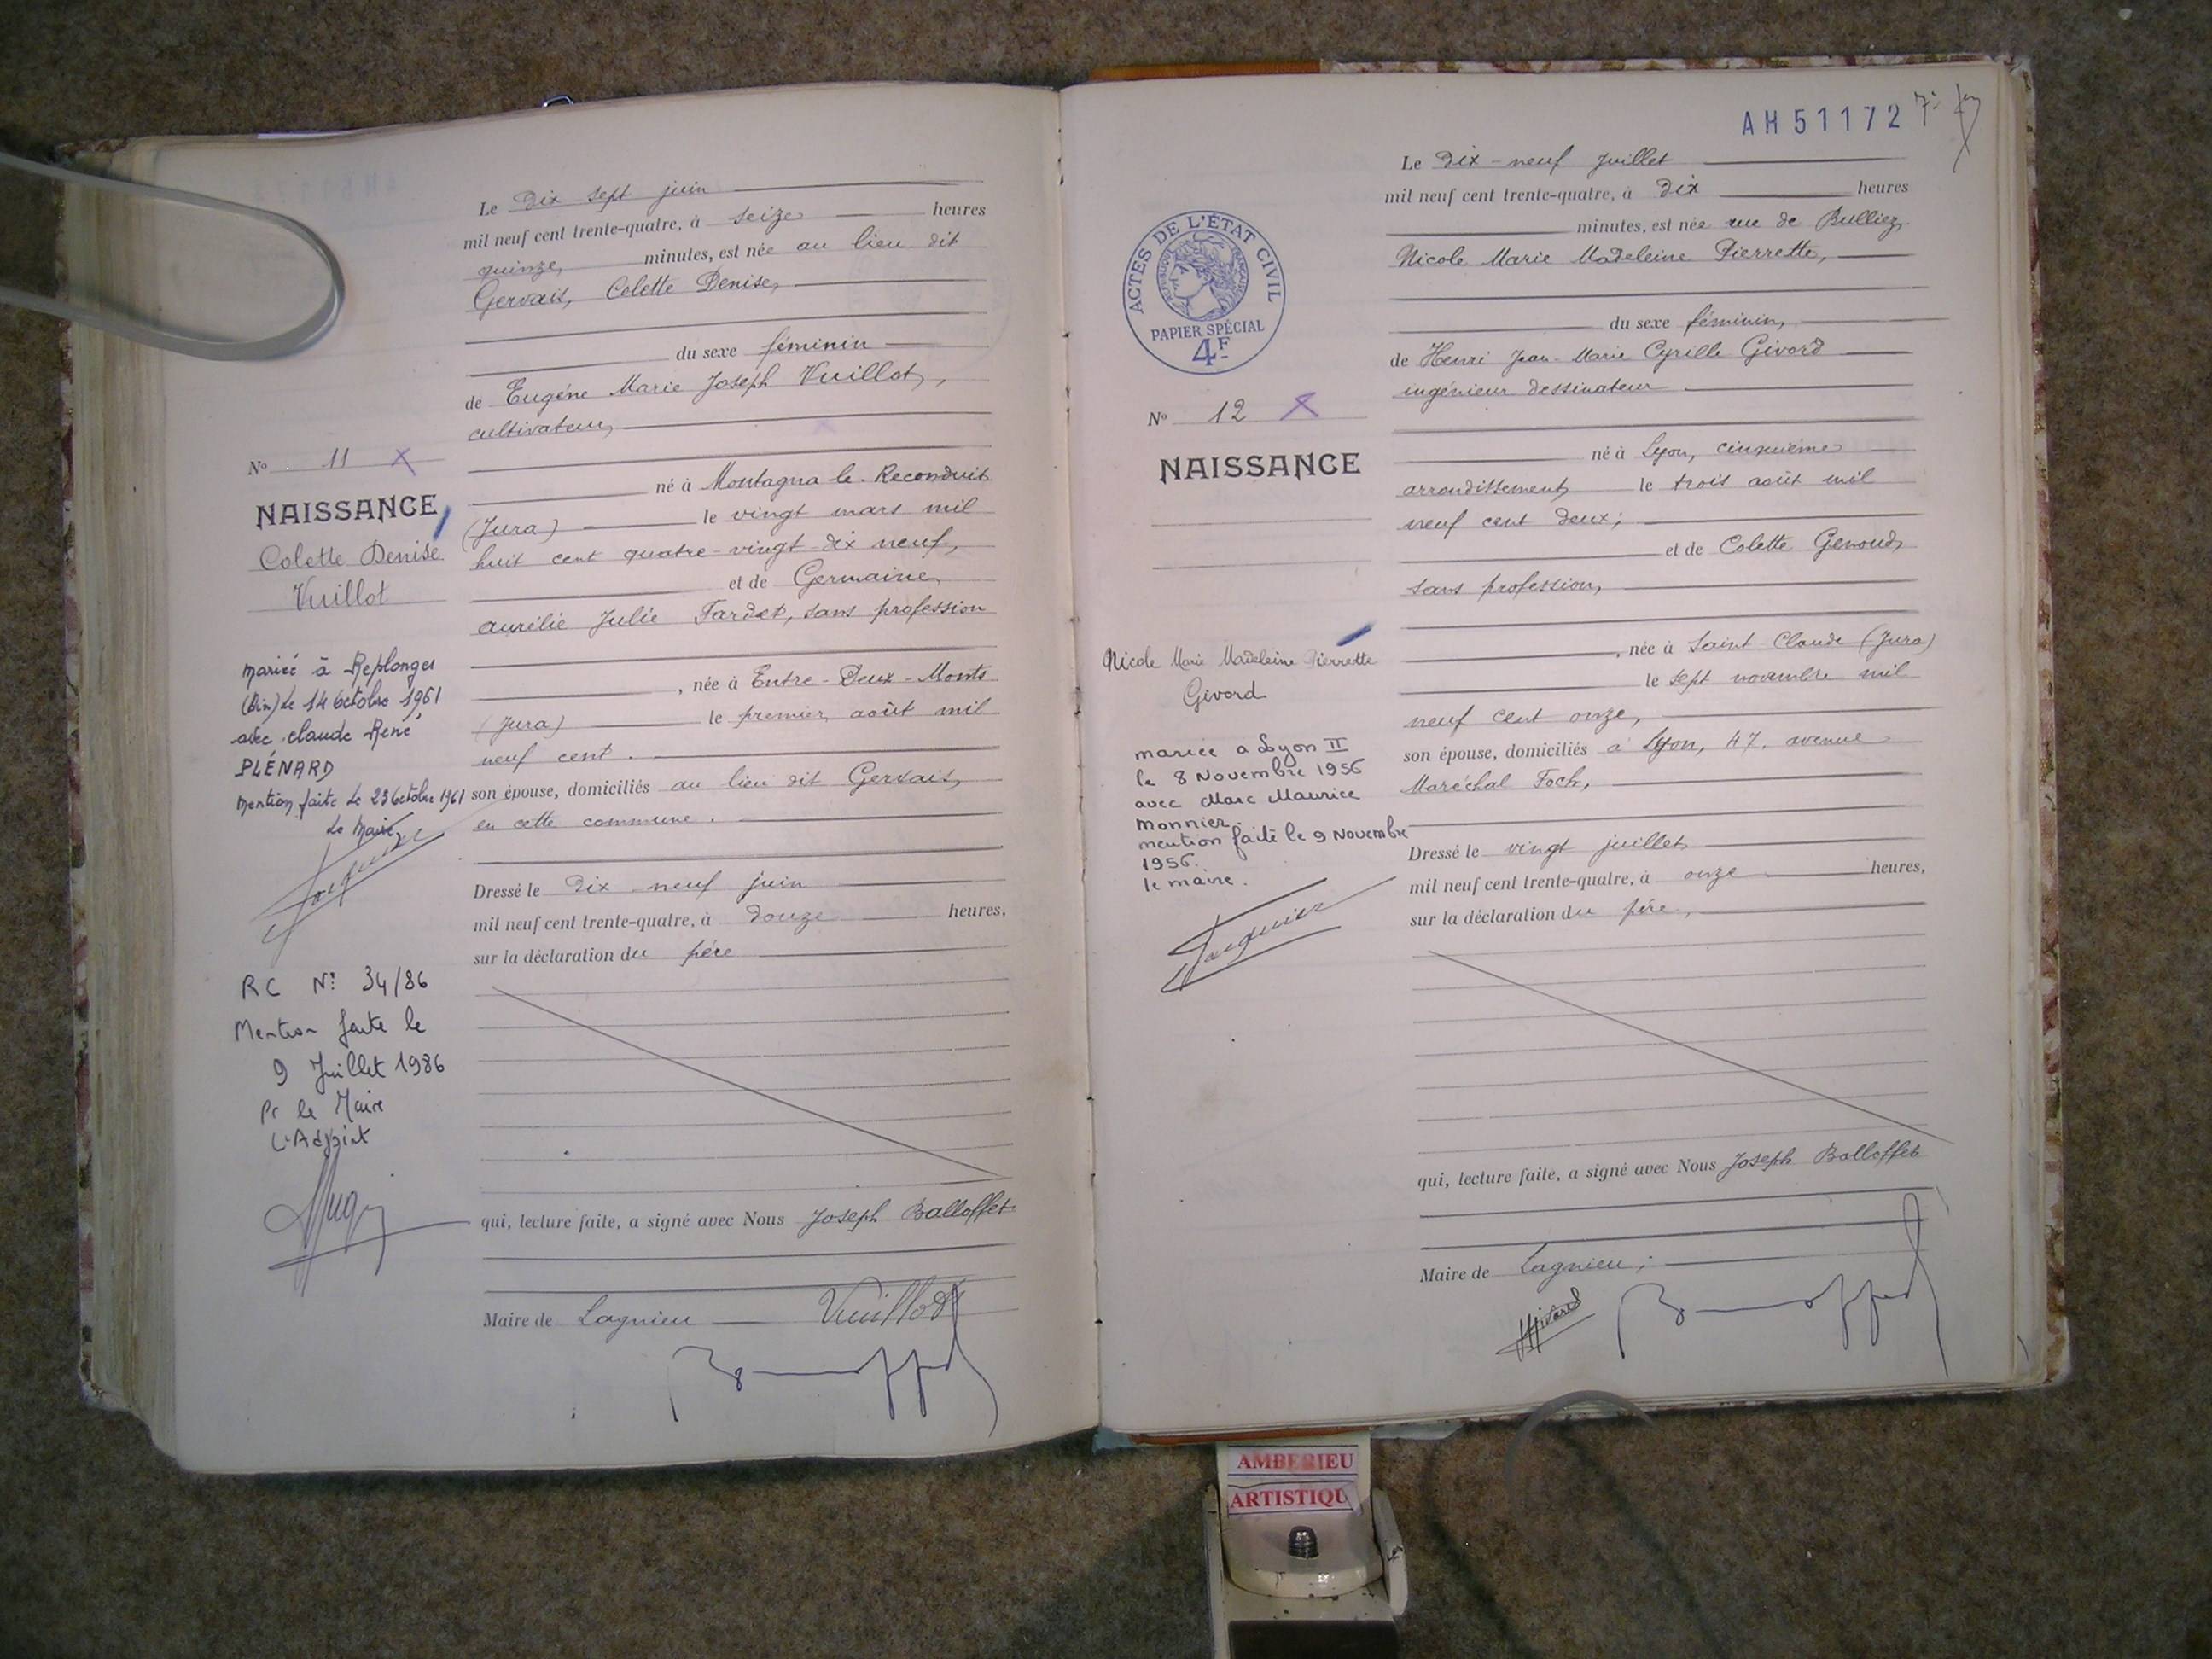 Le dix sept juin
mil neuf cent trente-quatre, à seize heures
quinze, minutes, est née au lieu dit
Gervais, Colette Denise,
du sexe féminin
de Eugène Marie Joseph Vuillot,
cultivateur,
né à Montagna-le-Reconduit
(Jura) le vingt mars mil
huit cent quatre-vingt-dix neuf,
et de Germaine,
aurélie Julie Fardet, sans profession
, née à Entre-Deux-Monts
(Jura) le premier août mil
neuf cent.
son épouse, domiciliés au lieu dit Gervais,
en cette commune.
Dressé le dix neuf juin
mil neuf cent trente-quatre, à douze heures,
sur la déclaration du père
qui, lecture faite, a signé avec Nous Joseph Balloffet
Maire de Lagnieu
Vuillot
No 11
NAISSANCE
Colette Denise
Vuillot
mariée à Replonges
(Ain) le 14 octobre 1961
avec claude René
PLÉNARD
Mention faite le 23 octobre 1961
Le Maire,
RC N° 34/86
Mention faite le
9 Juillet 1986
Pr le Maire
L'Adjoint
AH51172
ACTES DE L'ÉTAT CIVIL
RÉPUBLIQUE FRANÇAISE
PAPIER SPÉCIAL
4F
Le dix-neuf juillet
mil neuf cent trente-quatre, à dix heures
minutes, est née rue de Bulliez,
Nicole Marie Madeleine Pierrette,
du sexe féminin,
de Henri Jean-Marie Cyrille Givord
ingénieur dessinateur
né à Lyon, cinquième
arrondissement, le trois août mil
neuf cent deux;
et de Colette Genoud,
sans profession,
, née à Saint Claude (Jura)
le sept novembre mil
neuf cent onze,
son épouse, domiciliés à Lyon, 47, avenue
Maréchal Foch,
Dressé le vingt juillet
mil neuf cent trente-quatre, à onze heures,
sur la déclaration du père,
qui, lecture faite, a signé avec Nous Joseph Balloffet
Maire de Lagnieu;
HGivord
No 12
NAISSANCE
Nicole Marie Madeleine Pierrette
Givord
mariée à Lyon II
le 8 Novembre 1956
avec Marc Maurice
Monnier.
mention faite le 9 Novembre
1956.
le maire.
AMBERIEU
ARTISTIQU